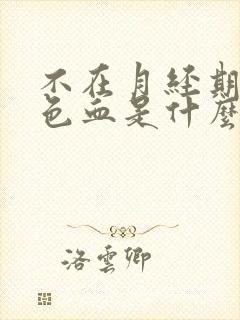 不在月经期
色血是什麼
洛雲卿